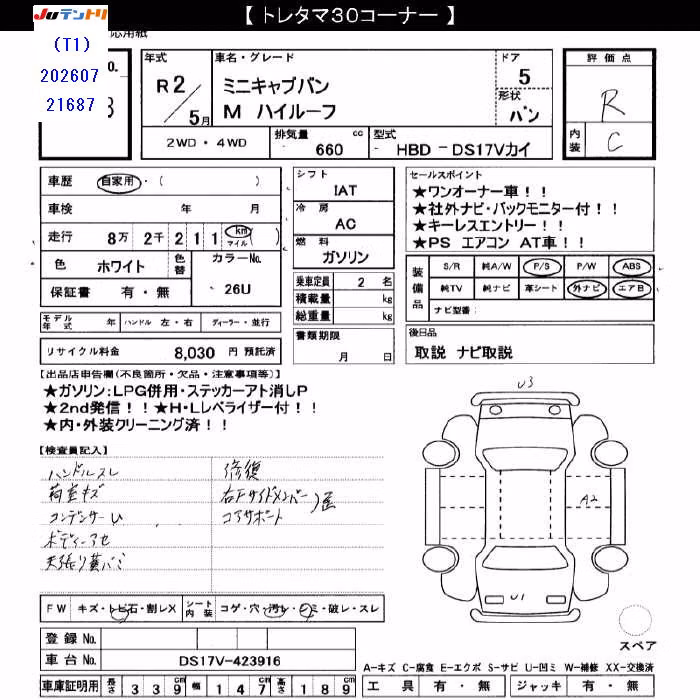 【 トレタマ30コーナー 】
JUテントリ
応用紙
(T1)
202607
21687
o.
3
年式
R2/5月
車名・グレード
ミニキャブバン
M ハイルーフ
ドア
5
形状
バン
2WD・4WD
排気量 cc
660
型式
HBD -DS17Vカイ
評価点
R
内装
C
車歴 自家用・( )
車検 年 月
走行 8万 2千 2 1 1 km マイル ( )
色 ホワイト 色替
カラーNo.
26U
保証書 有・無
シフト
IAT
冷房
AC
燃料
ガソリン
乗車定員 2 名
積載量 kg
総重量 kg
書類期限
月 日
セールスポイント
★ワンオーナー車!!
★社外ナビ・バックモニター付!!
★キーレスエントリー!!
★PS エアコン AT車!!
装備品
S/R 純A/W P/S P/W ABS
純TV 純ナビ 革シート 外ナビ エアB
ナビ型番:
モデル年式 年 ハンドル 左・右 ディーラー・並行
リサイクル料金 8,030 円 預託済
後日品
取説 ナビ取説
【出品店申告欄(不良箇所・欠品・注意事項等)】
★ガソリン:LPG併用・ステッカーアト消しP
★2nd発信!!★H・Lレベライザー付!!
★内・外装クリーニング済!!
【検査員記入】
ハンドルスレ
荷室キズ
コンデンサーU
ボディーアセ
天張り黄バミ
修復
右Fサイドメンバー
コアサポート
U3
A2
U1
スペア
FW キズ・トビ石・割レX
シート内装 コゲ・穴・汚レ・シミ・破レ・スレ
登録No.
車台No. DS17V-423916
A-キズ C-腐食 E-エクボ S-サビ U-凹ミ W-補修 XX-交換済
車庫証明用 長さ 3 3 9 幅 1 4 7 高さ 1 8 9
工具 有・無 ジャッキ 有・無